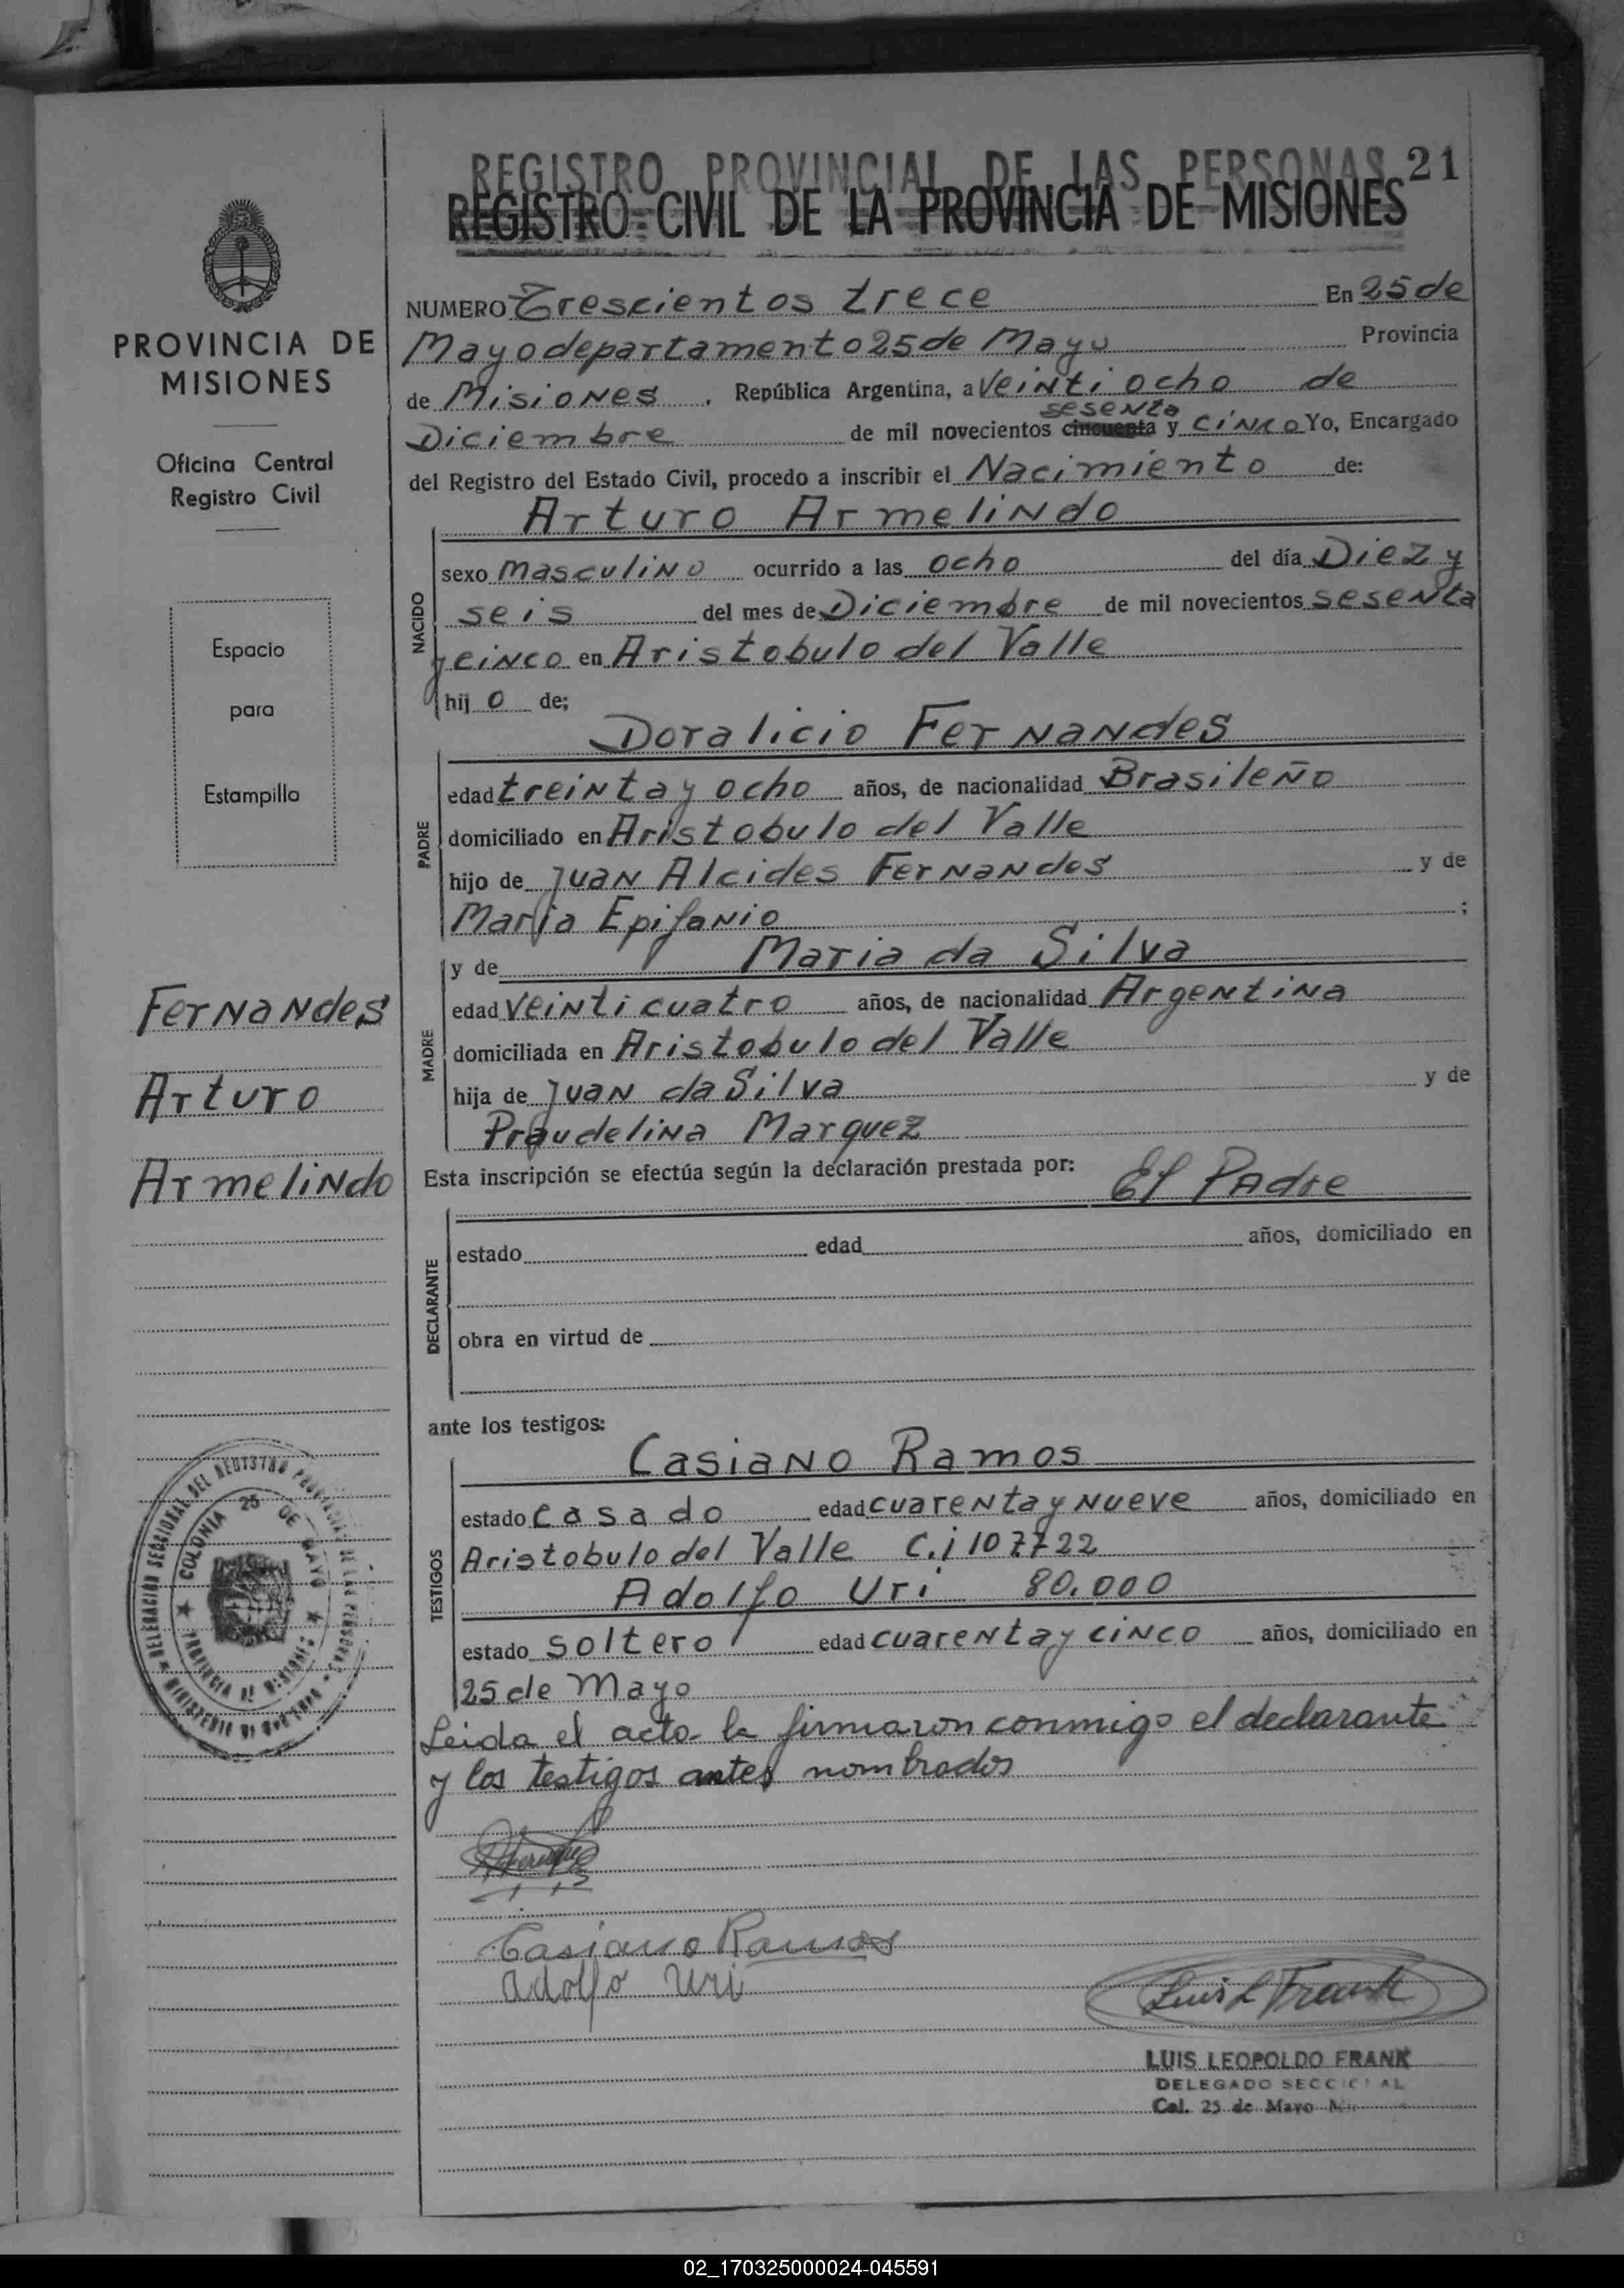 REGISTRO PROVINCIAL DE LAS PERSONAS 21
REGISTRO CIVIL DE LA PROVINCIA DE MISIONES
PROVINCIA DE
MISIONES
Oficina Central
Registro Civil
Espacio
para
Estampilla
Fernandes
Arturo
Armelindo
NUMERO Trescientos trece En 25 de
Mayo departamento 25 de Mayo Provincia
de Misiones, República Argentina, a veinti ocho de
sesenta
Diciembre de mil novecientos cincuenta y cinco Yo, Encargado
del Registro del Estado Civil, procedo a inscribir el Nacimiento de:
Arturo Armelindo
NACIDO
sexo masculino ocurrido a las ocho del día Diez y
seis del mes de Diciembre de mil novecientos sesenta
y cinco en Aristobulo del Valle
hij o de;
Doralicio Fernandes
PADRE
edad treinta y ocho años, de nacionalidad Brasileño
domiciliado en Aristobulo del Valle
hijo de Juan Alcides Fernandes y de
Maria Epifanio ;
y de Maria da Silva
MADRE
edad veinti cuatro años, de nacionalidad Argentina
domiciliada en Aristobulo del Valle
hija de Juan da Silva y de
Praudelina Marquez
Esta inscripción se efectúa según la declaración prestada por: El Padre
DECLARANTE
estado edad años, domiciliado en
obra en virtud de
ante los testigos:
Casiano Ramos
TESTIGOS
estado casado edad cuarenta y nueve años, domiciliado en
Aristobulo del Valle C.i 107722
Adolfo Uri 80.000
estado soltero edad cuarenta y cinco años, domiciliado en
25 de Mayo
Leida el acta la firmaron conmigo el declarante
y los testigos antes nombrados
Casiano Ramos
Adolfo Uri
Luis L Frank
LUIS LEOPOLDO FRANK
DELEGADO SECCIONAL
Col. 25 de Mayo
DELEGACION SECCIONAL DEL REGISTRO PROVINCIAL DE LAS PERSONAS
MINISTERIO DE GOBIERNO
COLONIA 25 DE MAYO
PROVINCIA DE MISIONES
02_170325000024-045591